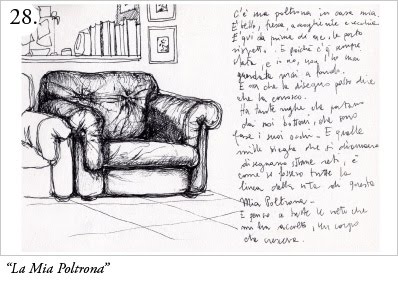 28.
C'è una poltrona in casa mia
È bella, fresca, accogliente e vecchia.
È qui da prima di me, le porto
rispetto. E poichè c'è sempre
stata, e io no, non l'ho mai
guardata così a fondo.
E ora che la disegno posso dire
che la conosco.
Ha tante rughe che partono
dai suoi bottoni, che sono
forse i suoi occhi. E quelle
mille pieghe che si diramano
disegnano strane reti, è
come se fossero tutte la
linea della vita di questa
Mia Poltrona.
E penso a tutte le volte che
mi ha accolto, un corpo
che cresceva.
“La Mia Poltrona”